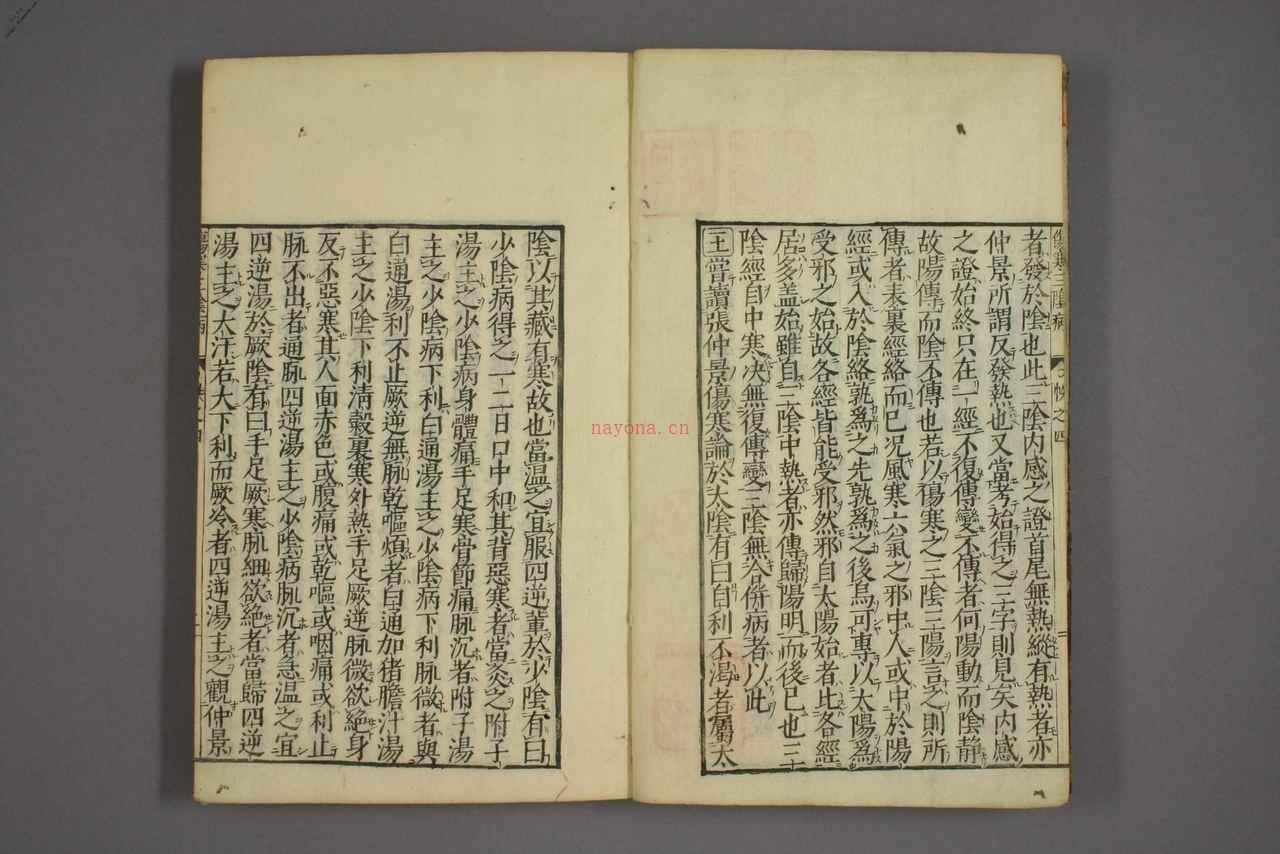 者發於陰也此三陰內感之證首尾無熱縱有熱者亦
仲景所謂反發熱也又當考始得之三字則見矣內感
之證始終只在一經不復傳變不傳者何陽動而陰靜
故陽傳而陰不傳也若以傷寒之三陰三陽言之則所
傳者表裏經絡而已况風寒六氣之邪中人或中於陽
經或入於陰絡孰爲之先孰爲之後烏可專以太陽爲
受邪之始故各經皆能受邪然邪自太陽始者比各經
居多盖始雖自三陰中熱者亦傳歸陽明而後已也三
陰經自中寒决無復傳變三陰無合併病者以此
王嘗讀張仲景傷寒論於太陰有曰自利不渴者屬太
陰以其藏有寒故也當温之宜服四逆輩於少陰有曰
少陰病得之一二日口中和其背惡寒者當灸之附子
湯主之少陰病身體痛手足寒骨節痛脉沉者附子湯
主之少陰病下利白通湯主之少陰病下利脉微者與
白通湯利不止厥逆無脉乾嘔煩者白通加猪膽汁湯
主之少陰下利淸穀裏寒外熱手足厥逆脉微欲絶身
反不惡寒其人面赤色或腹痛或乾嘔或咽痛或利止
脉不出者通脉四逆湯主之少陰病脉沉者急温之宜
四逆湯於厥陰有曰手足厥寒脉細欲絶者當歸四逆
湯主之大汗若大下利而厥冷者四逆湯主之觀仲景
nayona.cn